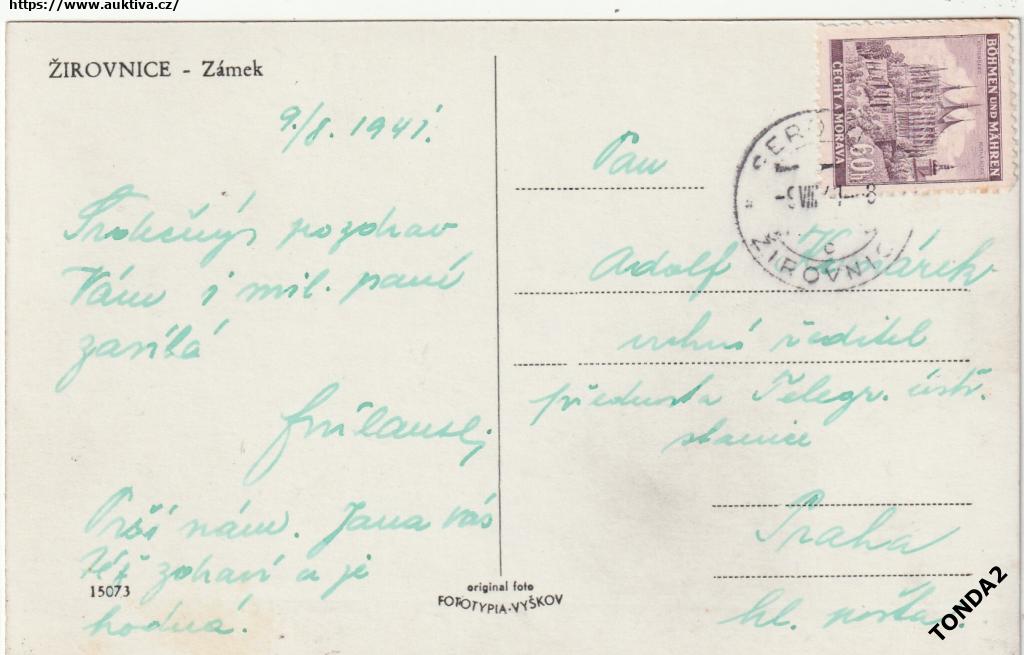 https://www.auktiva.cz/
ŽIROVNICE - Zámek
9./8. 1941.
Srdečný pozdrav
Vám i mil. paní
zasílá
Prší nám. Jana vás
též zdraví a je
hodná.
15073
original foto
FOTOTYPIA-VYŠKOV
BÖHMEN UND MÄHREN
ČECHY A MORAVA
60h
ŽIROVNIC
Pan
Adolf
vrchní ředitel
přednosta Telegr. ústř.
stanice
Praha
hl. pošta.
TONDA2